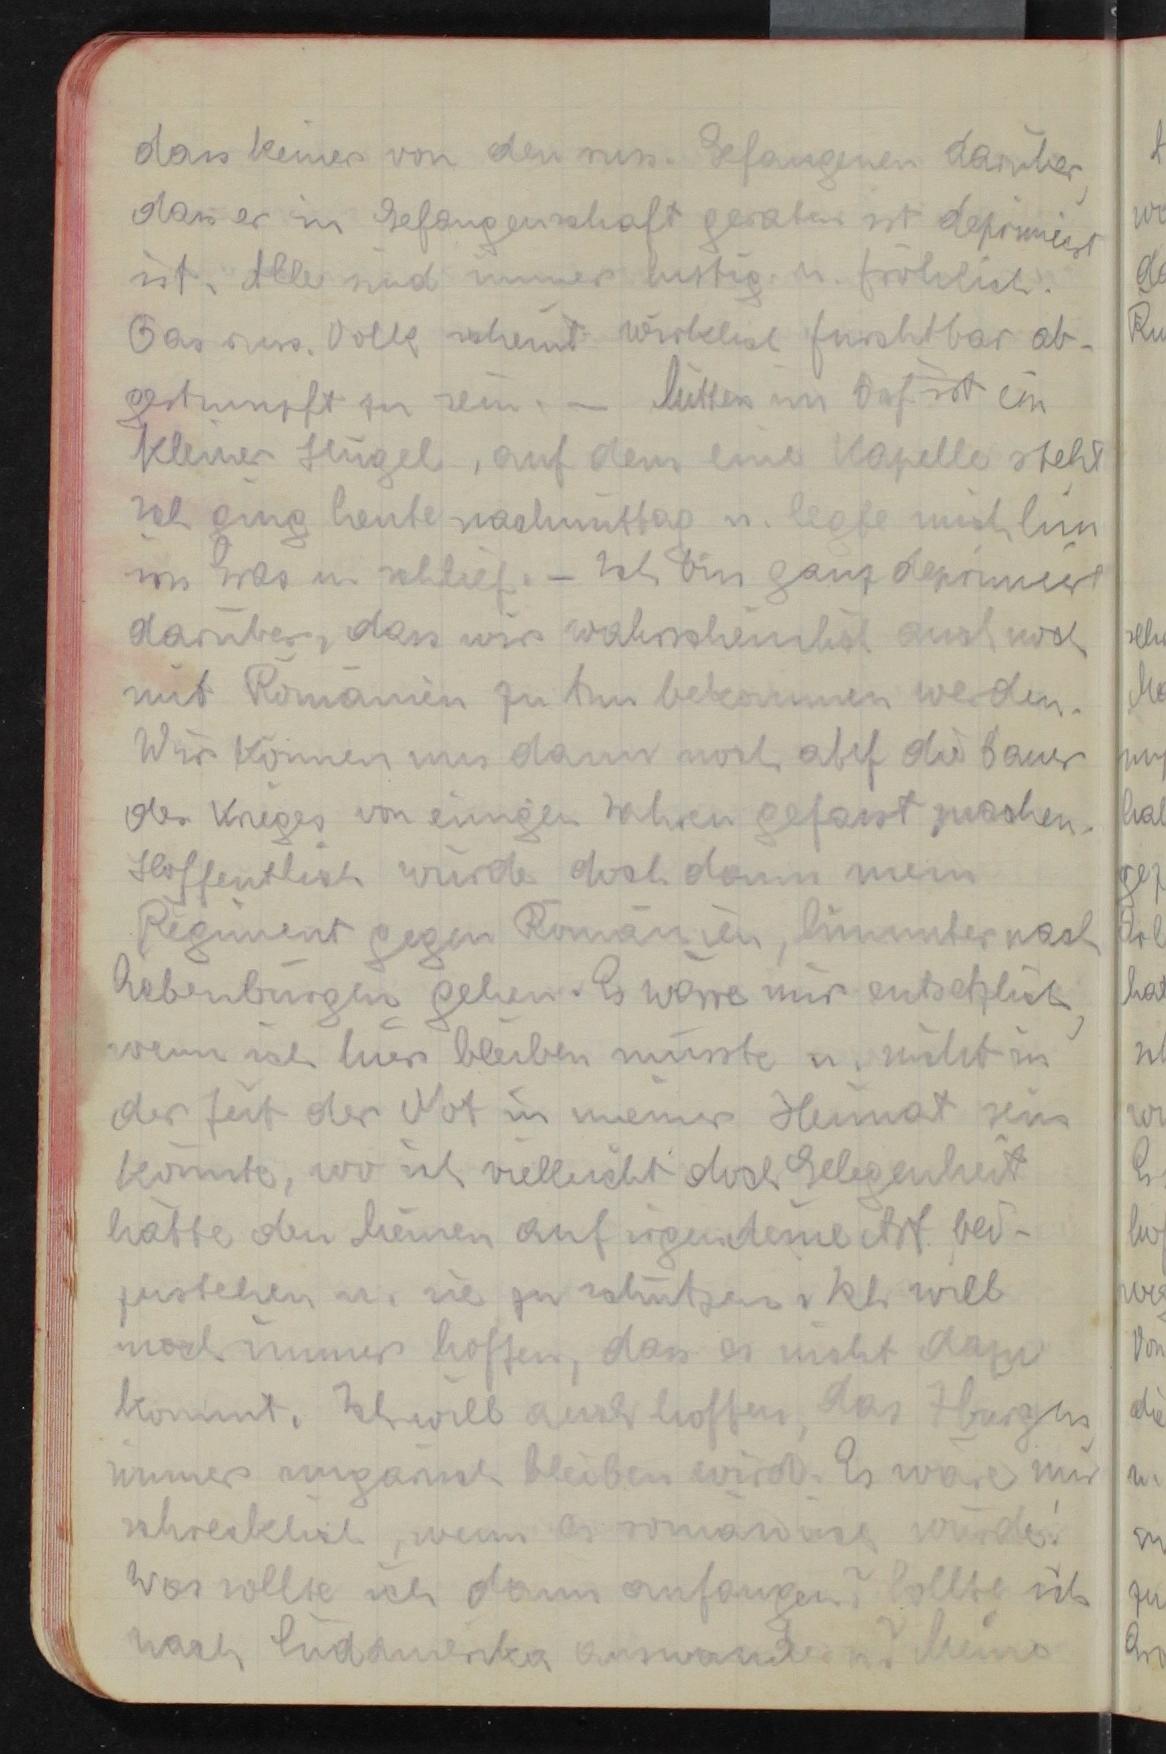 dass keiner von den russ. Gefangenen darüber,
dass er in Gefangenschaft geraten ist deprimiert
ist. Alle sind immer lustig u. fröhlich.
Das russ. Volk scheint wirklich furchtbar ab-
gestumpft zu sein. — Mitten im Dorf ist ein
kleiner Hügel, auf dem eine Kapelle steht
Ich ging heute nachmittag u. legte mich hin
ins Gras u. schlief. — Ich bin ganz deprimiert
darüber, dass wir wahrscheinlich auch noch
mit Romänien zu tun bekommen werden.
Wir können uns dann noch auf die Dauer
des Krieges von einigen Jahren gefasst machen.
Hoffentlich würde doch dann mein
Regiment gegen Romänien, hinunter nach
Siebenbürgen gehen. Es wäre mir entsetzlich,
wenn ich hier bleiben müsste u. nicht in
der Zeit der Not in meiner Heimat sein
könnte, wo ich vielleicht doch Gelegenheit
hätte den Meinen auf irgendeine Art bei-
zustehen u. sie zu schützen. Ich will
noch immer hoffen, dass es nicht dazu
kommt. Ich will auch hoffen, das 7bürgen
immer ungarisch bleiben wird. Es wäre mir
schrecklich, wenn es romänisch würde!
Was sollte ich dann anfangen? Sollte ich
nach Südamerika auswandern? Meine